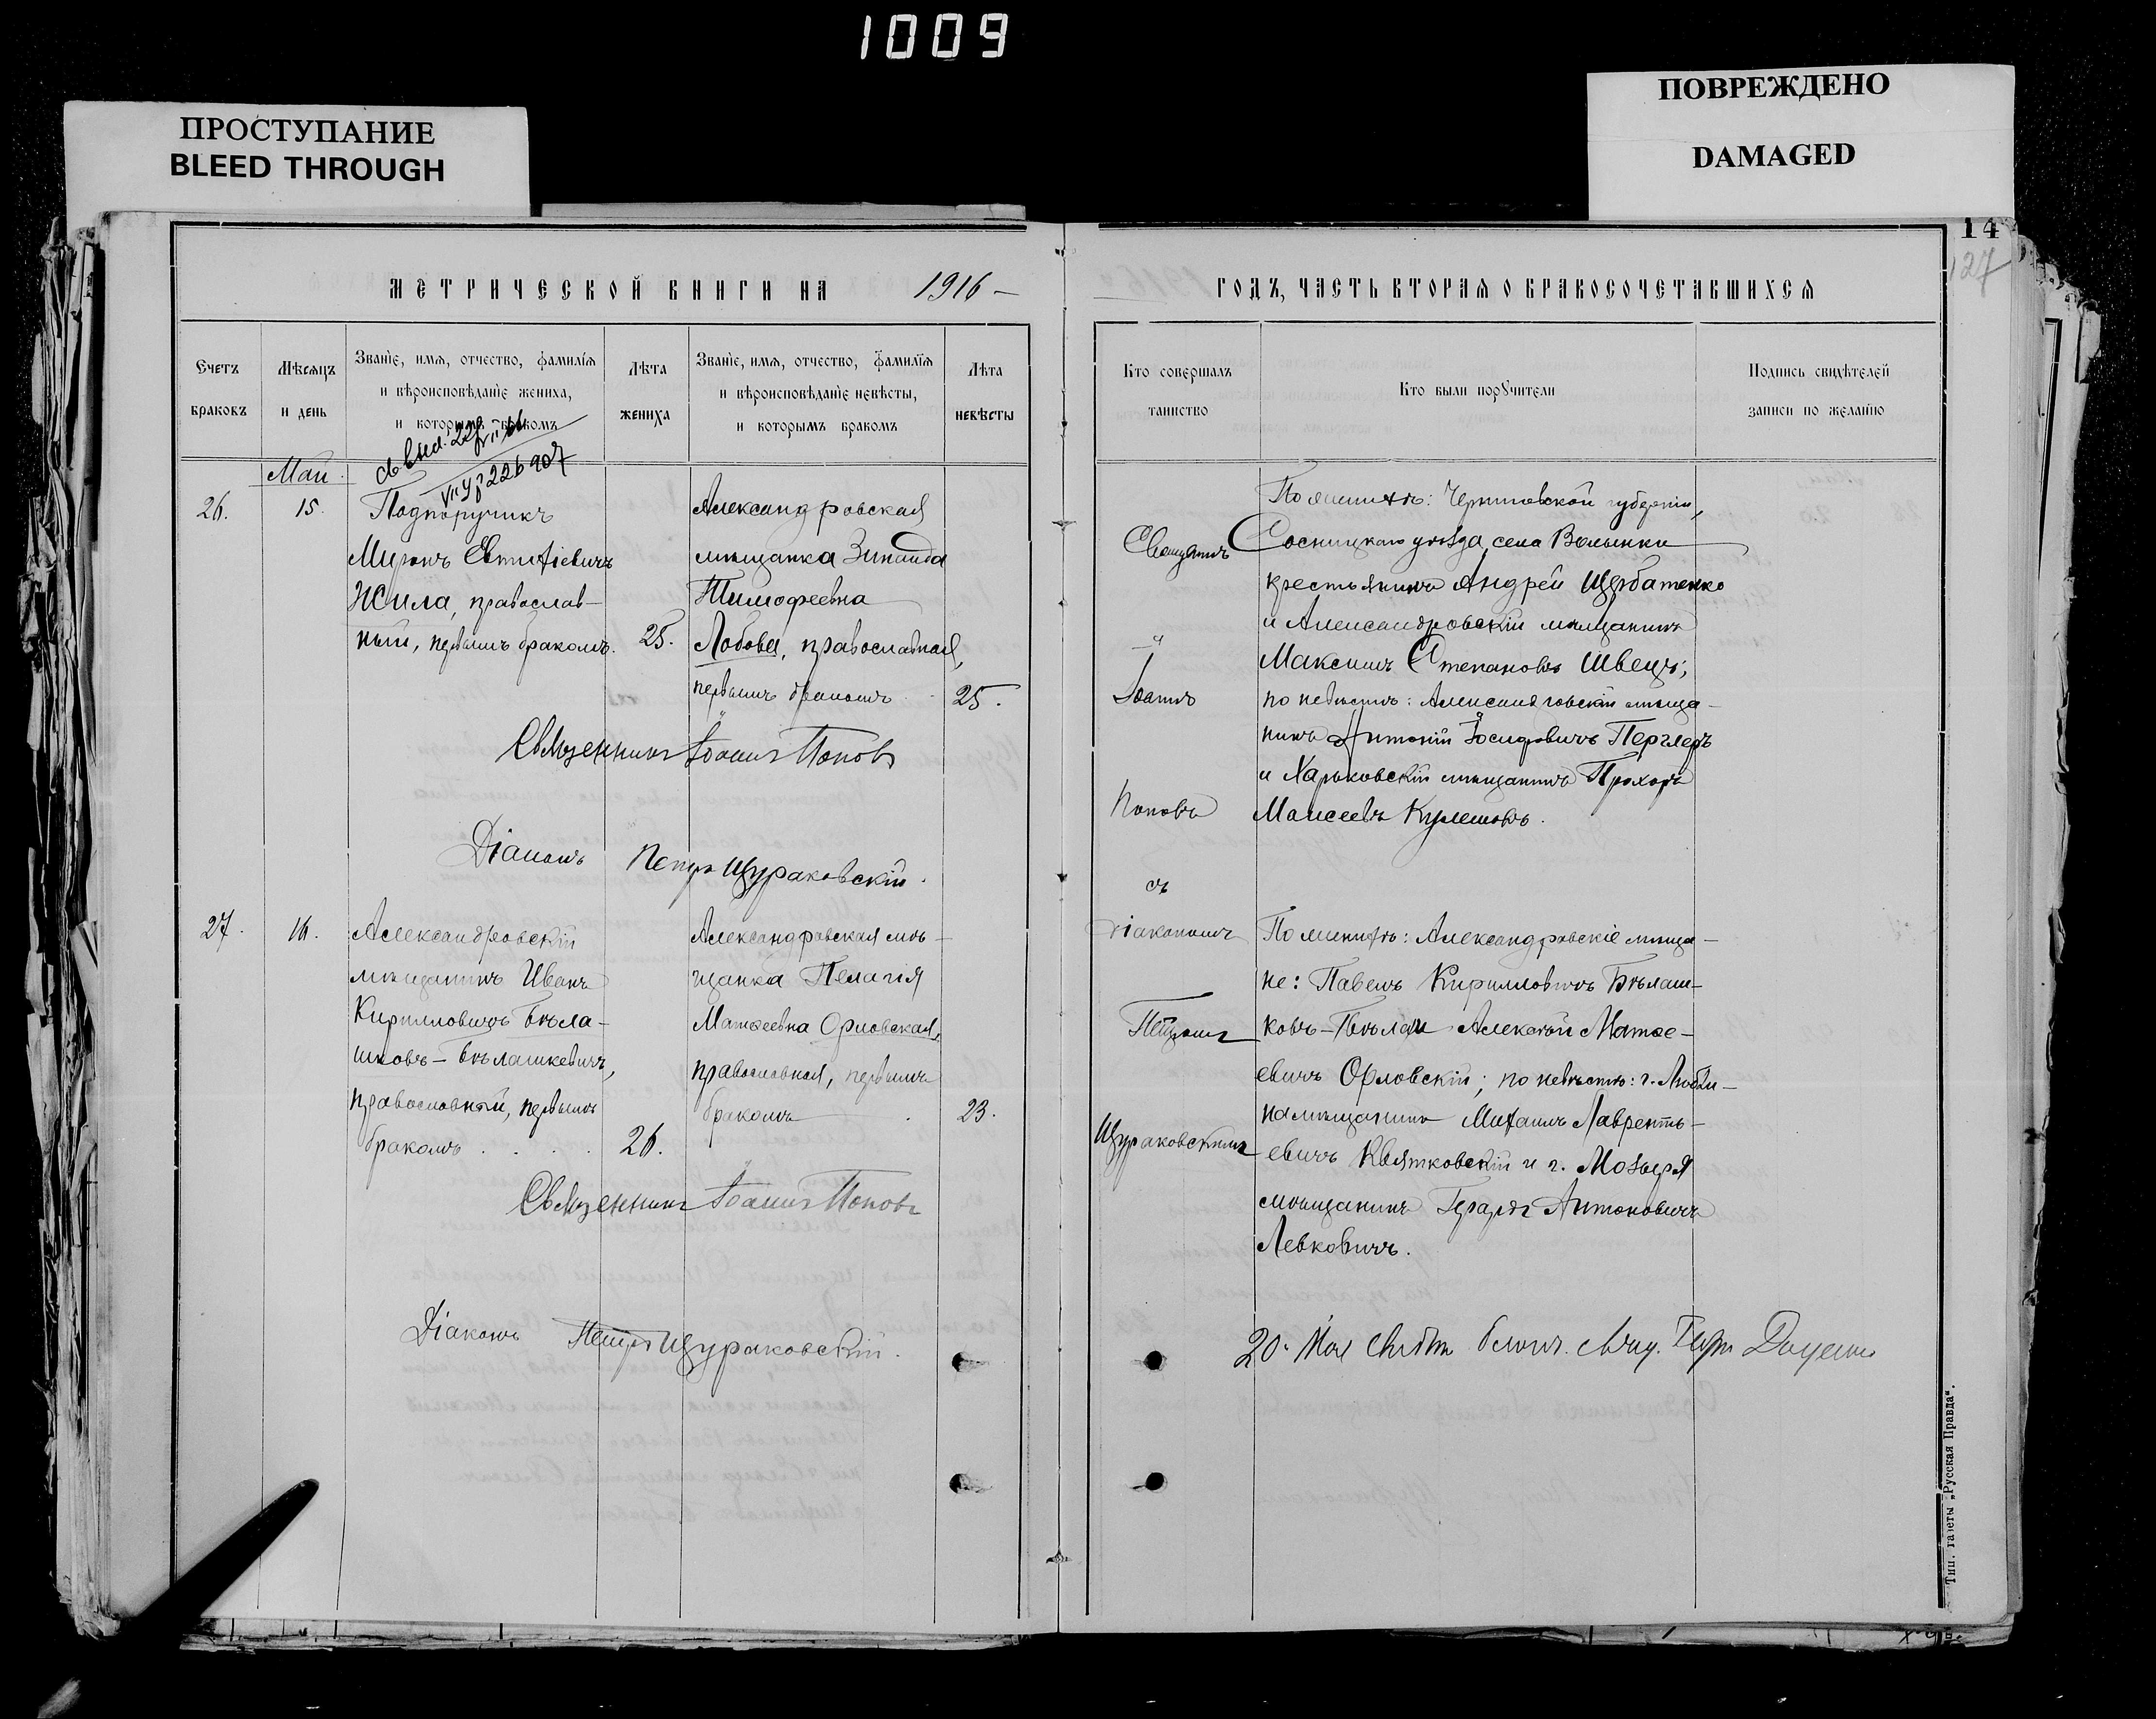 1009
ПРОСТУПАНИЕ
BLEED THROUGH
ПОВРЕЖДЕНО
DAMAGED
14
127
МЕТРИЧЕСКОЙ КНИГИ НА 1916 –
Счетъ браковъ
Мѣсяцъ и день
Званіе, имя, отчество, фамилія
и вѣроисповѣданіе жениха,
и которымъ бракомъ
Лѣта жениха
Званіе, имя, отчество, фамилія
и вѣроисповѣданіе невѣсты,
и которымъ бракомъ
Лѣта невѣсты
Май
26.
15.
Подпоручикъ
Миронъ Евтихіевичъ
Жила, православ–
ный, первымъ бракомъ.
25.
Александровская
мѣщанка Зинаида
Тимофеевна
Лобова, православная,
первымъ бракомъ
25.
Священникъ Іоаннъ Поповъ
Діаконъ Петръ Щураковскій.
27.
16.
Александровскій
мѣщанинъ Иванъ
Кирилловичъ Бѣла–
шковъ – Бѣлашкевичъ,
православный, первымъ
бракомъ . . . .
26.
Александровская мѣ–
щанка Пелагія
Матѳеевна Орловская,
православная, первымъ
бракомъ
23.
Священникъ Іоаннъ Поповъ
Діаконъ Петръ Щураковскій.
ГОДЪ, ЧАСТЬ ВТОРАЯ О БРАКОСОЧЕТАВШИХСЯ
Кто совершалъ
таинство
Кто были поручители
Подпись свидѣтелей
записи по желанію
Священникъ
Іоаннъ
Поповъ
съ
діакономъ
Петромъ
Щураковскимъ
По женихѣ: Черниговской губерніи,
Сосницкаго уѣзда, села Волынки
крестьянинъ Андрей Щербатенко
и Александровскій мѣщанинъ
Максимъ Степановъ Швецъ;
по невѣстѣ: Александровскій мѣща–
нинъ Антоній Іосифовичъ Перглеръ
и Харьковскій мѣщанинъ Прохоръ
Моисеевъ Кулешовъ.
По женихѣ: Александровскіе мѣща–
не: Павелъ Кирилловичъ Бѣлаш–
ковъ – Алексѣй Матѳе–
евичъ Орловскій; по невѣстѣ: г. Любли–
на мѣщанинъ Михаилъ Лавренть–
евичъ Квятковскій и г. Мозыря
мѣщанинъ Антоновичъ
Левковичъ.
20. Мая
Тип. газеты „Русская Правда“.